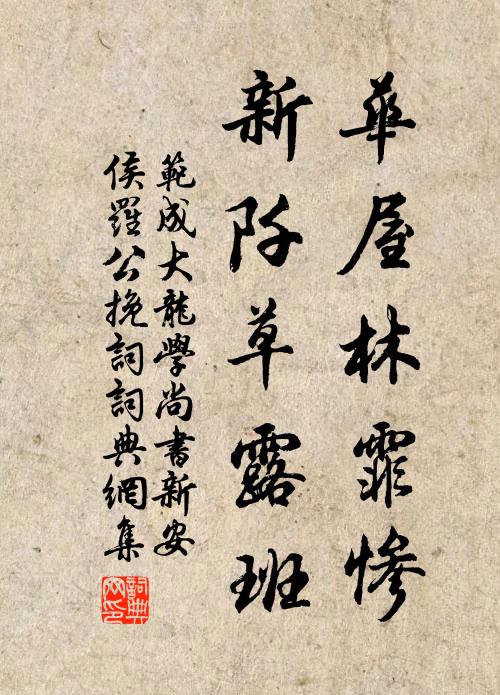 華屋林霏慘
新阡草露班
範成大龍學尚書新安
侯羅公挽詞詞典網集
詞典
网印